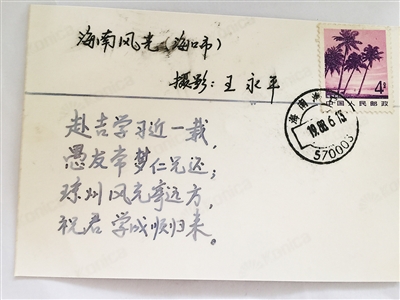 海南风光(海口市)
摄影:王永平
4分
中国人民邮政
海南海
1988.6.13.
570003
赴吉学习近一载,
愚友常梦仁兄还;
琼州风光寄远方,
祝君学成顺归来。